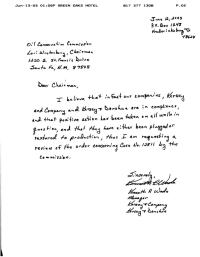 Jun-13-03 01:05P GREEN OAKS HOTEL 817 377 1308 P.02
June 12, 2003
P.O. Box 1248
Fredericksburg Tx
78624
Oil Conservation Commission
Lori Wrotenbery, Chairman
1220 S. St. Francis Drive
Santa Fe, N.M. 87505
Dear Chairman,
I believe that in fact our companies, Kersey
and Company and Kersey + Donohue are in compliance,
and that positive action has been taken on all wells in
question, and that they have either been plugged or
restored to production, thus I am requesting a
review of the order concerning Case No. 12811 by the
Commission.
Sincerely,
Kenneth R Wade
Manager
Kersey + Company
Kersey + Donohue